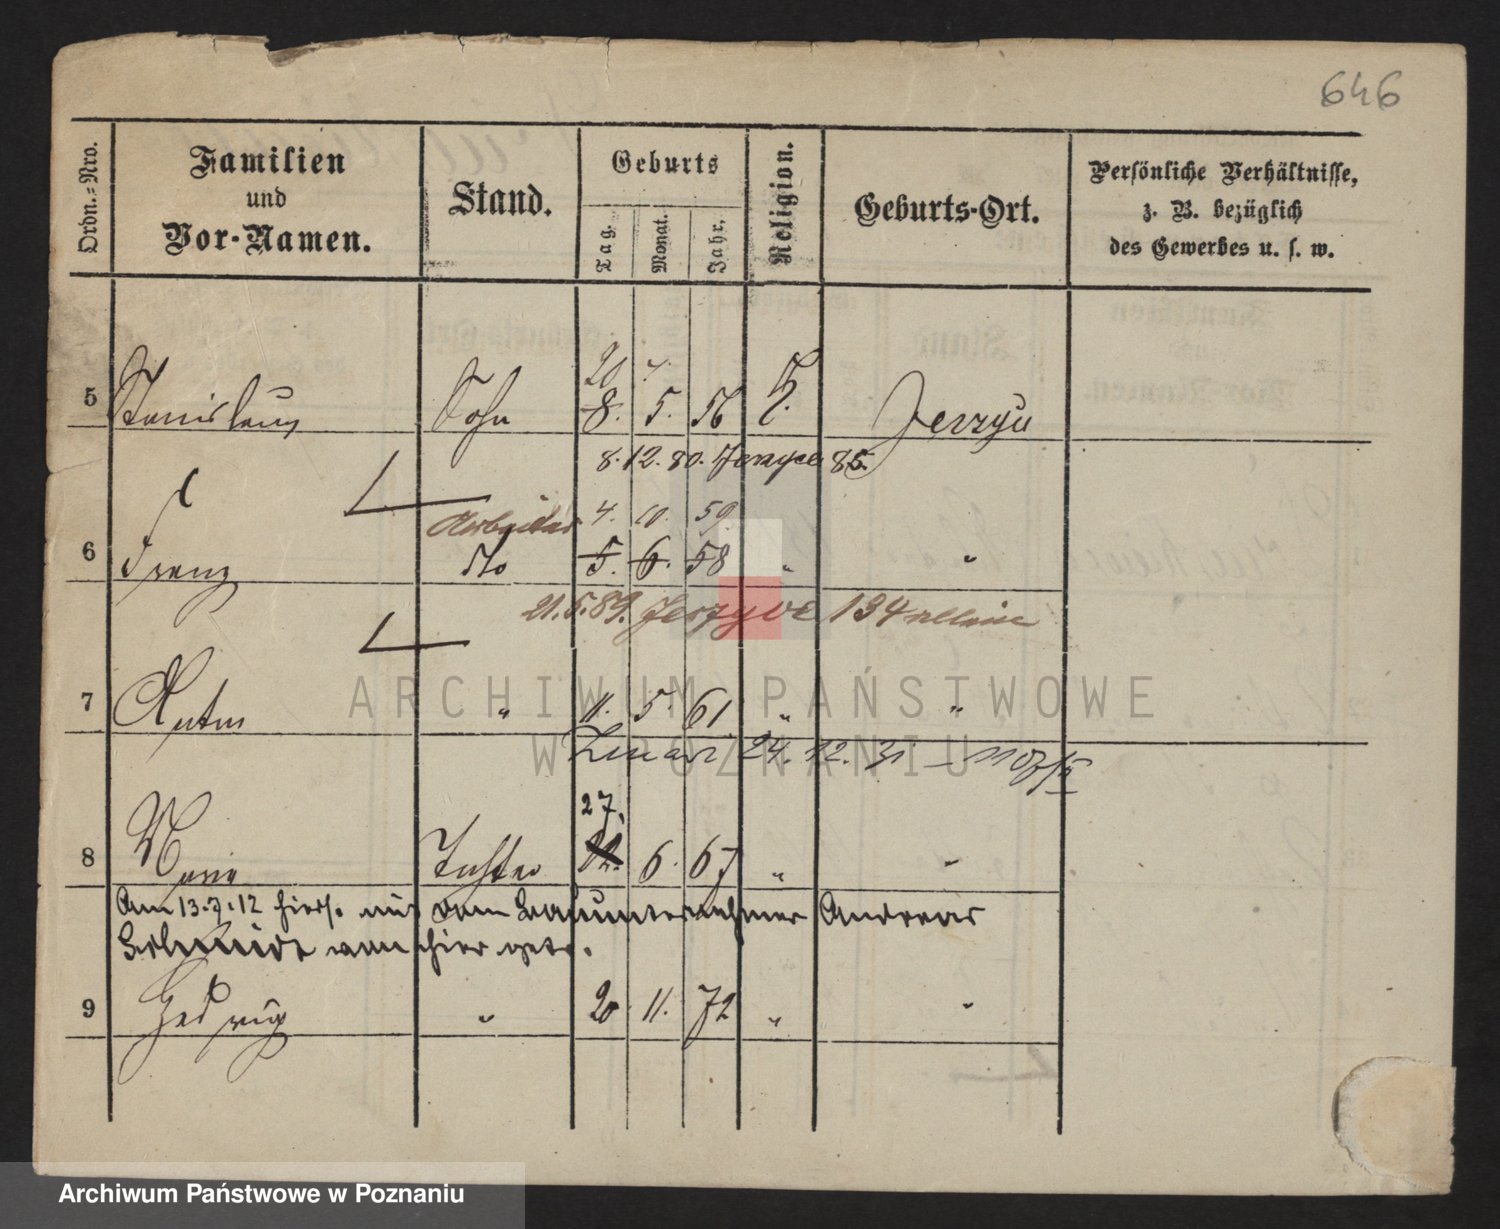 646
Ordn.=Nro.
Familien
und
Vor-Namen.
Stand.
Geburts
Tag.
Monat.
Jahr.
Religion.
Geburts-Ort.
Persönliche Verhältnisse,
z. B. bezüglich
des Gewerbes u. s. w.
20 7.
5 Stanislaus Sohn 8. 5. 56 K. Jerzyce
8. 12. 80. Jerzyce 85.
Arbeiter 4. 10. 59
6 Franz Sto 5. 6. 58 " "
21.5.89. Jerzyce 134 alleine
7 Anton " 11. 5. 61 " "
24. 12.
27.
8 Marie Tochter 6. 67 " "
Am 13.7.12 hiers. mit dem Bauunternehmer Andreas
Schmidt von hier getr.
9 Hedwig " 20 11. 72 " "
ARCHIWUM PAŃSTWOWE
W POZNANIU
Archiwum Państwowe w Poznaniu